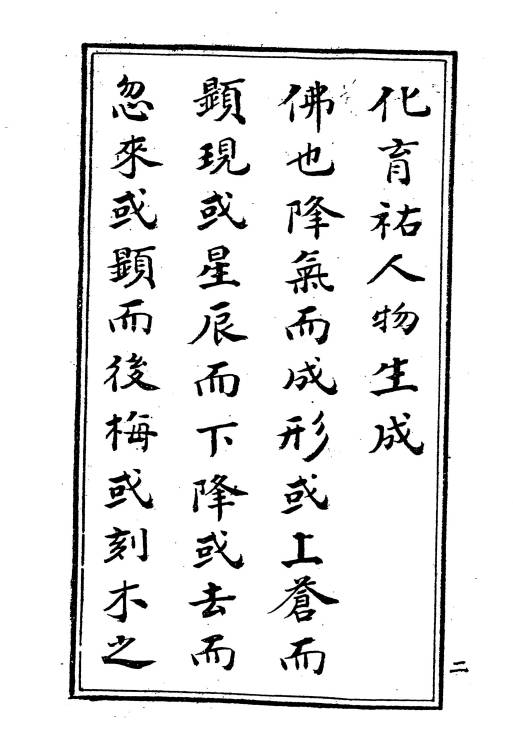 化育祐人物生成
佛也降氣而成形或上蒼而
顯現或星辰而下降或去而
忽來或顯而後梅或刻木之
二